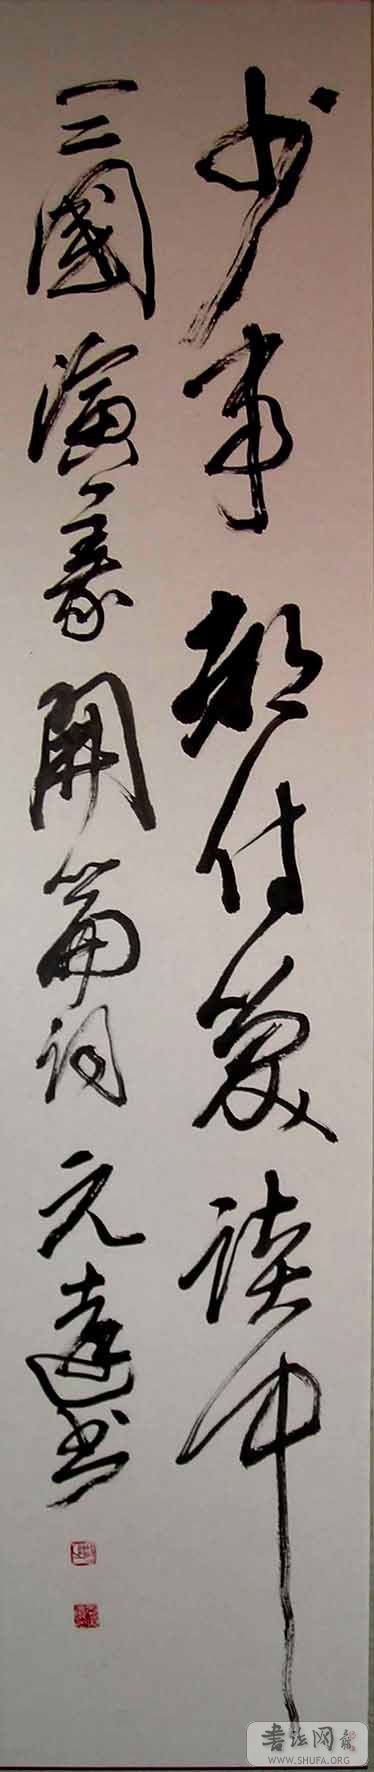 少事都付笑談中
三國演義開篇詞 元達書
書法网
WWW.SHUFA.ORG